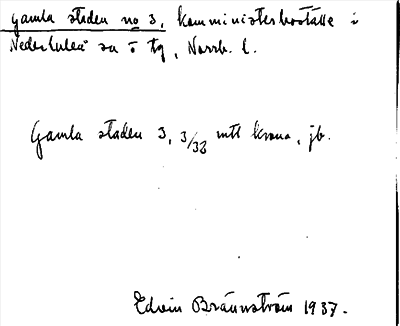 Gamla staden no 3, komministerboställe i
Nederluleå sn o tg, Norrb. l.
Gamla staden 3, 3/32 mtl krono, jb.
Edvin Brännström 1937.